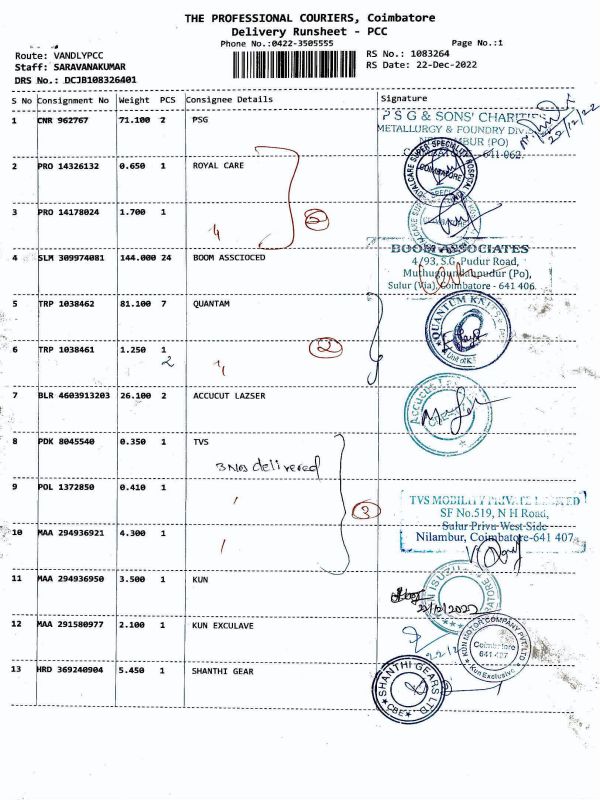 THE PROFESSIONAL COURIERS, Coimbatore
Delivery Runsheet - PCC
Phone No.:0422-3505555
Page No.:1
Route: VANDLYPCC
RS No.: 1083264
Staff: SARAVANAKUMAR
RS Date: 22-Dec-2022
DRS No.: DCJB108326401
S No Consignment No Weight PCS Consignee Details Signature
1 CNR 962767 71.100 2 PSG
P S G & SONS' CHARITIES
METALLURGY & FOUNDRY DIVISION
(PO)
641 062
22/12/22
2 PRO 14326132 0.650 1 ROYAL CARE
SUPER SPECIALITY HOSPITAL
COIMBATORE
3 PRO 14178024 1.700 1 "
2
4 SLM 309974081 144.000 24 BOOM ASSCIOCED
BOOM ASSOCIATES
4/93, S.G. Pudur Road,
Muthugoundanpudur (Po),
Sulur (Via), Coimbatore - 641 406.
5 TRP 1038462 81.100 7 QUANTAM
QUANTUM
6 TRP 1038461 1.250 1
2
2
7 BLR 4603913203 26.100 2 ACCUCUT LAZSER
Accucut
8 PDK 8045540 0.350 1 TVS
3 Nos delivered
9 POL 1372850 0.410 1
3
TVS MOBILITY PRIVATE LIMITED
SF No.519, N H Road,
Sulur Privu West Side
Nilambur, Coimbatore-641 407
10 MAA 294936921 4.300 1
11 MAA 294936950 3.500 1 KUN
ISUZU
22/12/2022
12 MAA 291580977 2.100 1 KUN EXCULAVE
KUN MOTOR COMPANY PVT LTD
Coimbatore
641 407
Kun Exclusive
13 HRD 369240904 5.450 1 SHANTHI GEAR
SHANTHI GEARS LTD
CBE